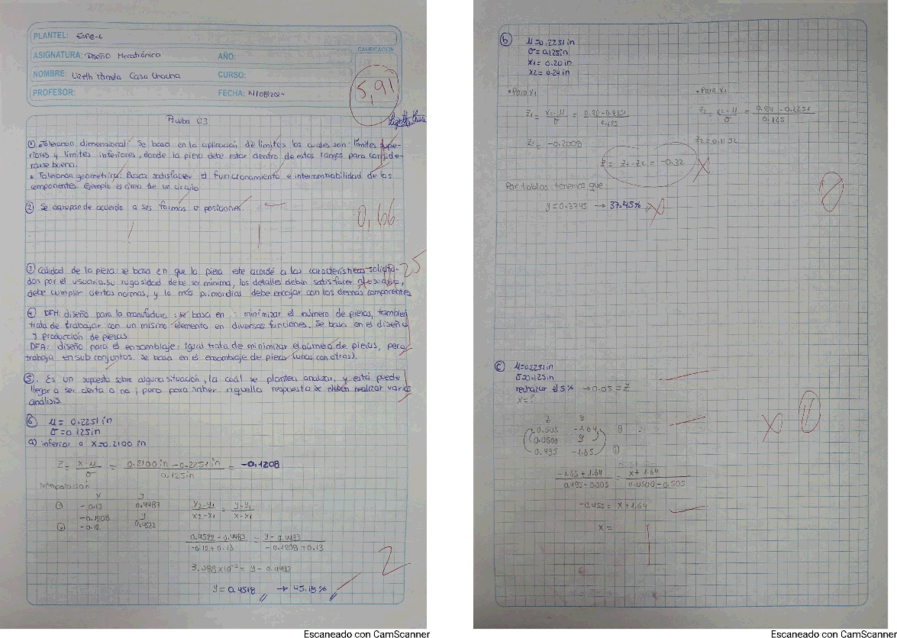 PLANTEL: ESPE-L
ASIGNATURA: Diseño Mecatrónico AÑO:
NOMBRE: Lizeth Caso CURSO:
PROFESOR: FECHA:
5,91
① Tolerancia dimensional: Se basa en la aplicación de límites los cuales son límites supe-
riores y límites inferiores, donde la pieza debe estar dentro de estos rangos para conside-
rarse buena.
• Tolerancia geométrica: Busca satisfacer el funcionamiento e intercambiabilidad de los
componentes. Ejemplo el de un círculo
② Se agrupan de acuerdo a sus formas o posiciones.
0,66
③ Calidad de la pieza: se basa en que la pieza este acorde a las características solicita-
das por el usuario, su rugosidad debe ser mínima, los detalles deben satisfacer
debe cumplir ciertas normas, y lo más primordial debe encajar con los demás componentes
④ DFM: diseño para la manufactura: se basa en: minimizar el número de piezas, también
trata de trabajar con un mismo elemento en diversas funciones. Se basa en el diseño
y producción de piezas
DFA: diseño para el ensamblaje: Igual trata de minimizar el número de piezas, pero
trabaja en sub conjuntos. se basa en el ensamblaje de piezas (unas con otras).
⑤ Es un supuesto sobre alguna situación, la cuál se plantea analizar, y esta puede
llegar a ser cierta o no; pero para saber aquella respuesta se deben realizar varios
análisis.
⑥ μ = 0.2251 in
σ = 0.125 in
a) inferior a x=0.2100 in
z = x-μ / σ = 0.2100 in - 0.2251 in / 0.125 in = -0.1208
Interpolación
x y
① -0.13 0.4483
-0.1208 y
② -0.12 0.4522
y2-y1 / x2-x1 = y-y1 / x-x1
0.4522 - 0.4483 / -0.12 + 0.13 = y - 0.4483 / -0.1208 + 0.13
y = 0.4518 → 45.18%
2
ⓑ μ=0.2251 in
σ=0.125 in
x1=0.20 in
x2=0.24 in
• Para x1
• Para x2
z1 = x1-μ / σ = 0.20-0.2251 / 0.125
z2 = x2-μ / σ = 0.24-0.2251 / 0.125
z1= -0.2008
Por tablas tenemos que
y=0.3745 → 37.45%
ⓒ μ=0.2251 in
σ=0.125 in
rechazar el 5% → 0.05 = z
x=?
0.505 -1.64
0.0500 y
0.495 -1.65
-1.65 + 1.64 / 0.495 - 0.505 = x + 1.64 / 0.0500 - 0.505
-0.455 = x + 1.64
x =
Escaneado con CamScanner
Escaneado con CamScanner